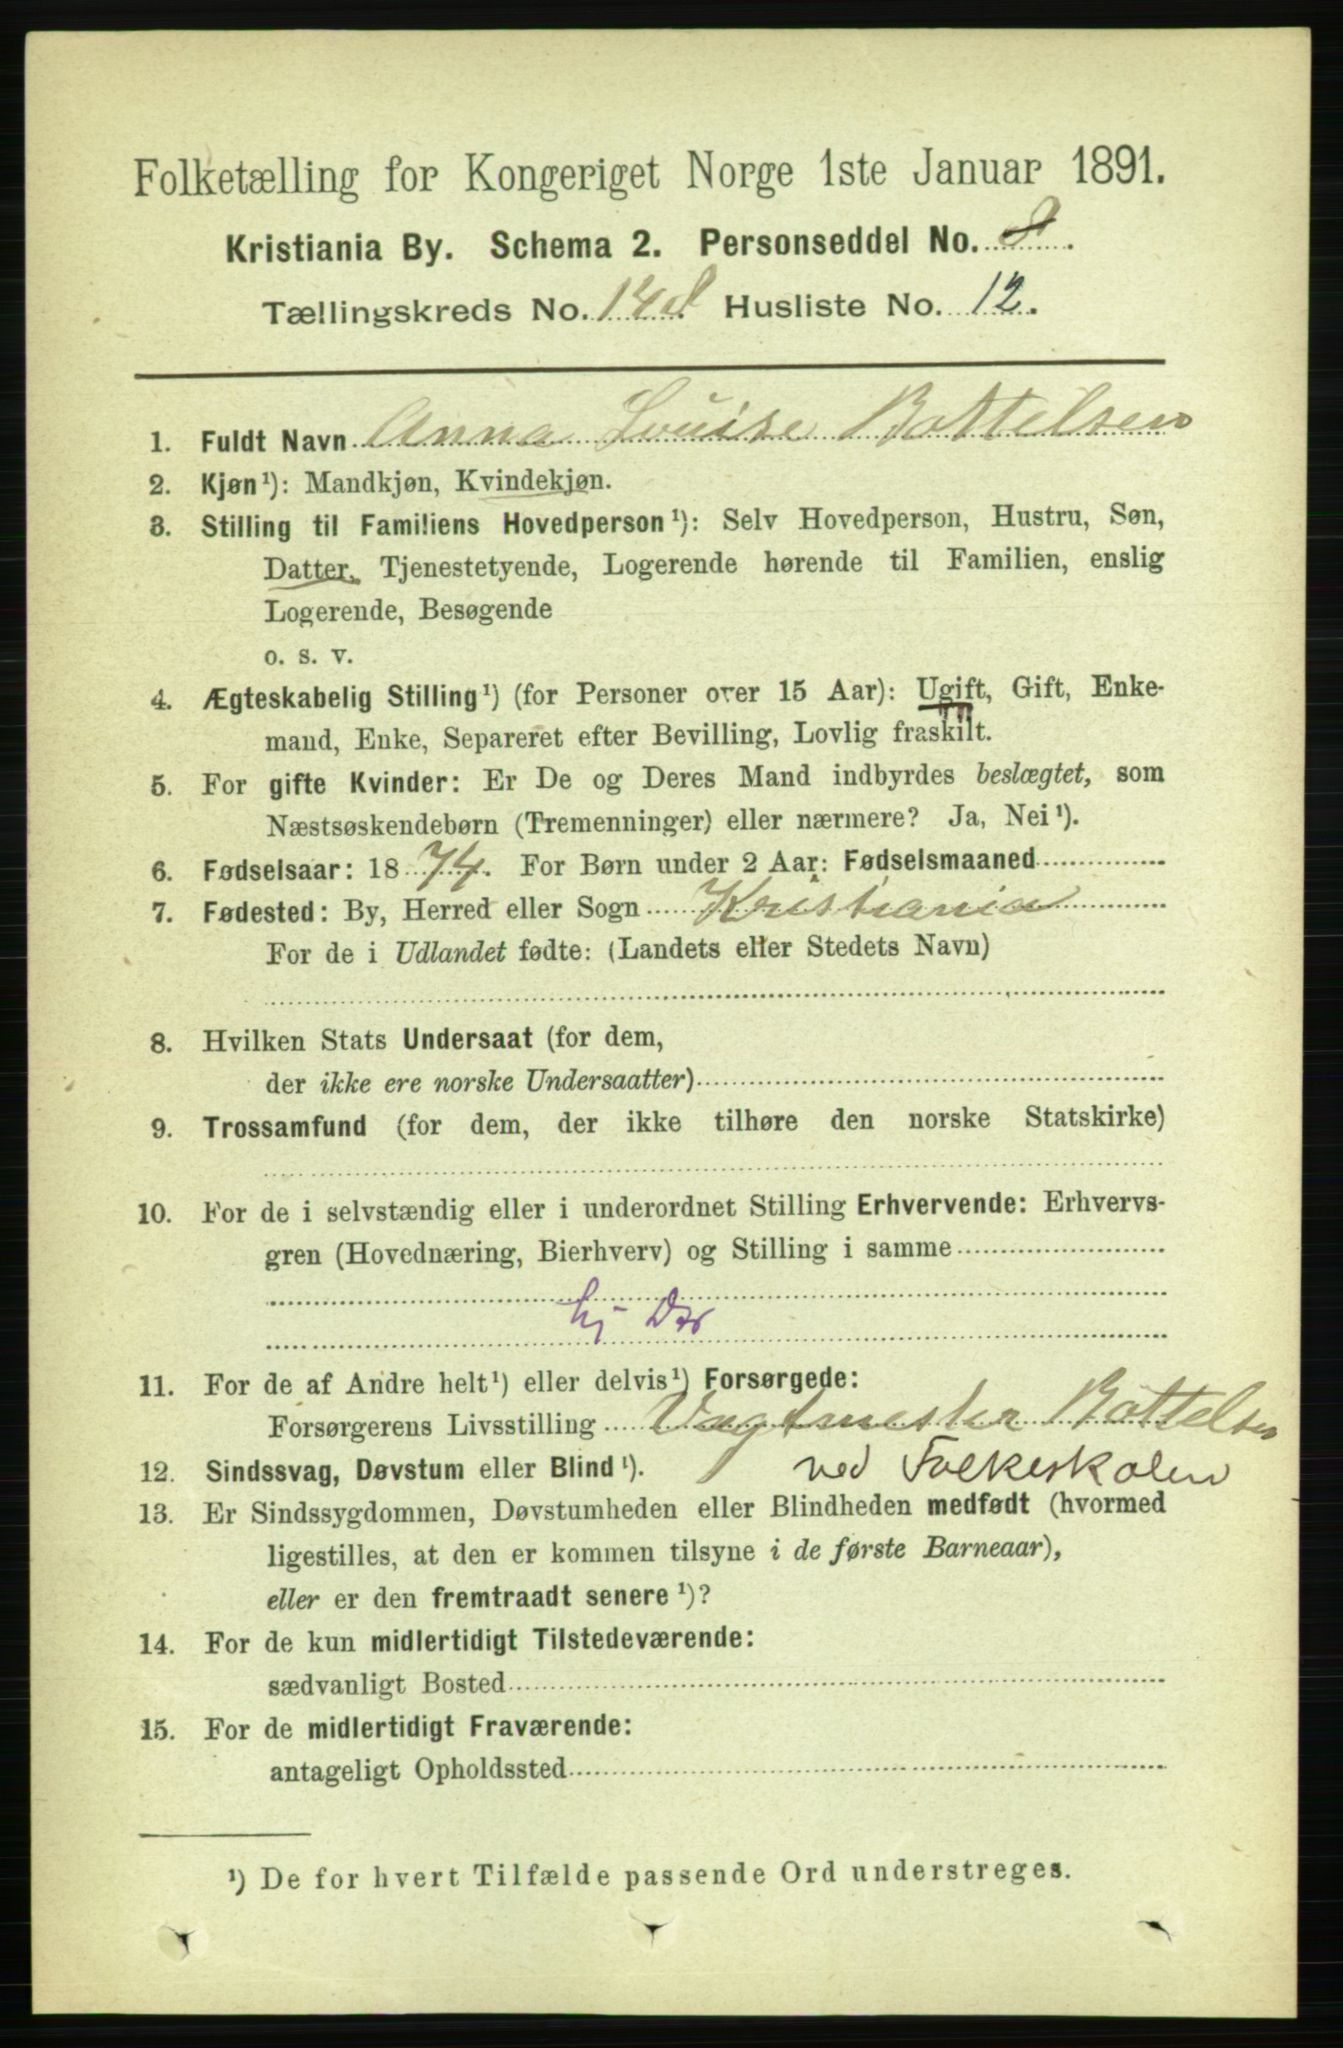 Folketælling for Kongeriget Norge 1ste Januar 1891.
Kristiania By. Schema 2. Personseddel No. 8.
Tællingskreds No. Husliste No. 12.
1. Fuldt Navn Anna Louise Bottelsen
2. Kjøn¹): Mandkjøn, Kvindekjøn.
3. Stilling til Familiens Hovedperson¹): Selv Hovedperson, Hustru, Søn,
Datter, Tjenestetyende, Logerende hørende til Familien, enslig
Logerende, Besøgende
o. s. v.
4. Ægteskabelig Stilling¹) (for Personer over 15 Aar): Ugift, Gift, Enke-
mand, Enke, Separeret efter Bevilling, Lovlig fraskilt.
5. For gifte Kvinder: Er De og Deres Mand indbyrdes beslægtet, som
Næstsøskendebørn (Tremenninger) eller nærmere? Ja, Nei¹).
6. Fødselsaar: 1874. For Børn under 2 Aar: Fødselsmaaned
7. Fødested: By, Herred eller Sogn Kristiania
For de i Udlandet fødte: (Landets eller Stedets Navn)
8. Hvilken Stats Undersaat (for dem,
der ikke ere norske Undersaatter)
9. Trossamfund (for dem, der ikke tilhøre den norske Statskirke)
10. For de i selvstændig eller i underordnet Stilling Erhvervende: Erhvervs-
gren (Hovednæring, Bierhverv) og Stilling i samme
11. For de af Andre helt¹) eller delvis¹) Forsørgede:
Forsørgerens Livsstilling Vagtmester Bottelsen
12. Sindssvag, Døvstum eller Blind¹). ved Folkeskolen
13. Er Sindssygdommen, Døvstumheden eller Blindheden medfødt (hvormed
ligestilles, at den er kommen tilsyne i de første Barneaar),
eller er den fremtraadt senere¹)?
14. For de kun midlertidigt Tilstedeværende:
sædvanligt Bosted
15. For de midlertidigt Fraværende:
antageligt Opholdssted
¹) De for hvert Tilfælde passende Ord understreges.